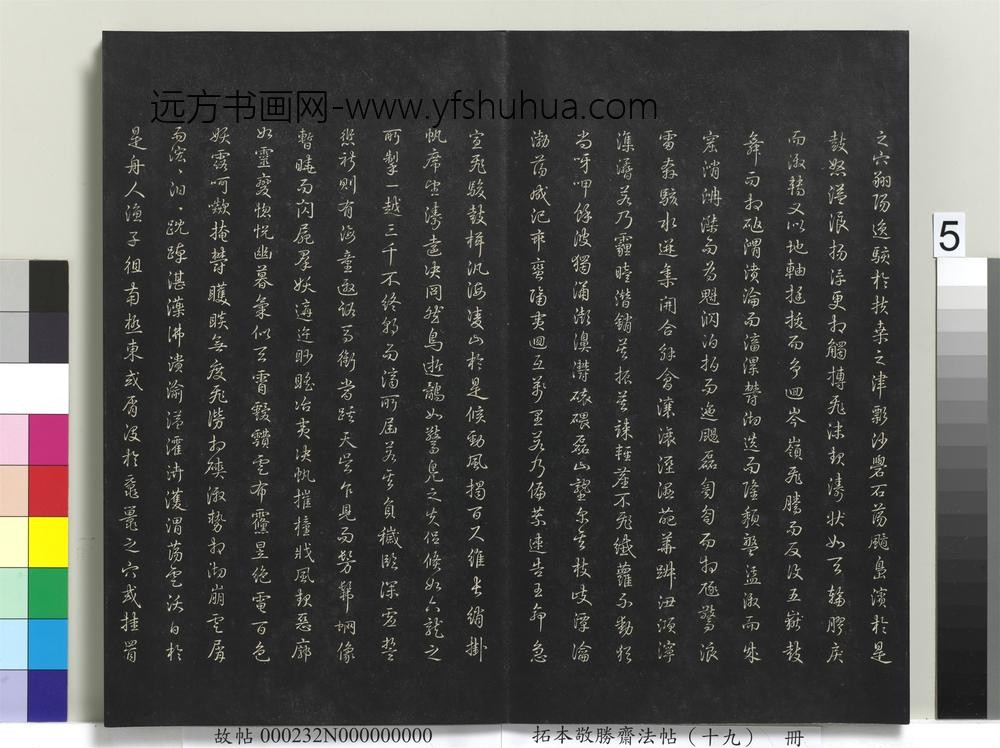 远方书画网-www.yfshuhua.com
之穴翔陽逸駭於扶桑之津彯沙礐石蕩䬍島濱於是
鼓怒溢浪揚浮更相觸搏飛沫起濤狀如天輪膠戾
而激轉又似地軸挺拔而爭迴岑嶺飛騰而反復五嶽鼓
舞而相磓㵒濆淪而滀漯鬱沏迭而隆頹盤盓激而成
窟㴐㶅滐而為魁㴸泊柏而迆颺磊匒匌而相豗驚浪
雷奔駭水迸集開合解會瀼瀼濕濕葩華踧沑頊濘
潗㵫若乃霾曀潛銷莫振莫竦輕塵不飛纖蘿不動猶
尚呀呷餘波獨涌澎濞灪磙碨磊山壟爾其枝岐潭瀹
渤蕩成汜乖蠻隔夷迴互萬里若乃偏荒速告王命急
宣飛駿鼓楫汎海凌山於是候勁風揭百尺維長綃掛
帆席望濤遠決冏然鳥逝鷸如驚鳧之失侶倏如六龍之
所掣一越三千不終朝而濟所屆若其負穢臨深虛誓
愆祈則有海童邀路馬銜當蹊天吳乍見而髣髴蝄像
暫曉而閃屍群妖遘迕眇䁘冶夷決帆摧橦戕風起惡廓
如靈變惚怳幽暮氣似天霄靉靅雲布靈昱絕電百色
妖露呵㰲掩鬱矆睒無度飛澇相磢激勢相沏崩雲屑
雨浤浤汩汩踔湛藥沸潰渝溢瀖泋濩渭蕩雲沃日於
是舟人漁子徂南極東或屑沒於黿鼉之穴或挂罥
5
故帖 000232N000000000
拓本敬勝齋法帖（十九） 冊